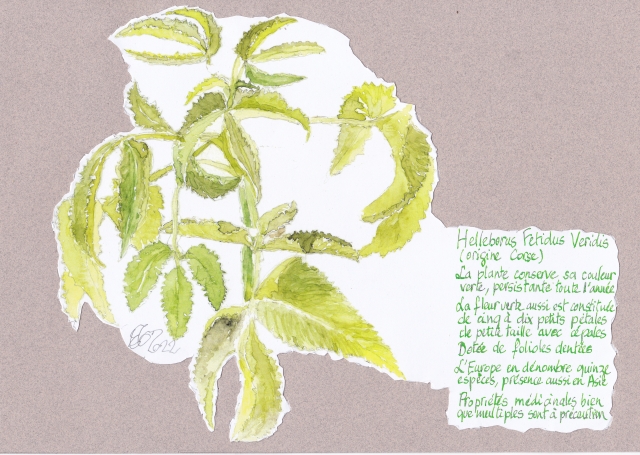 Helleborus Fétidus Veridis
(origine Corse)
La plante conserve sa couleur
verte, persistante toute l'année
La fleur verte aussi est constituée
de cinq à dix petits pétales
de petite taille avec sépales
Dotée de folioles dentées
L'Europe en dénombre quinze
espèces, présence aussi en Asie
Propriétés médicinales bien
que multiples sont à précaution
2022